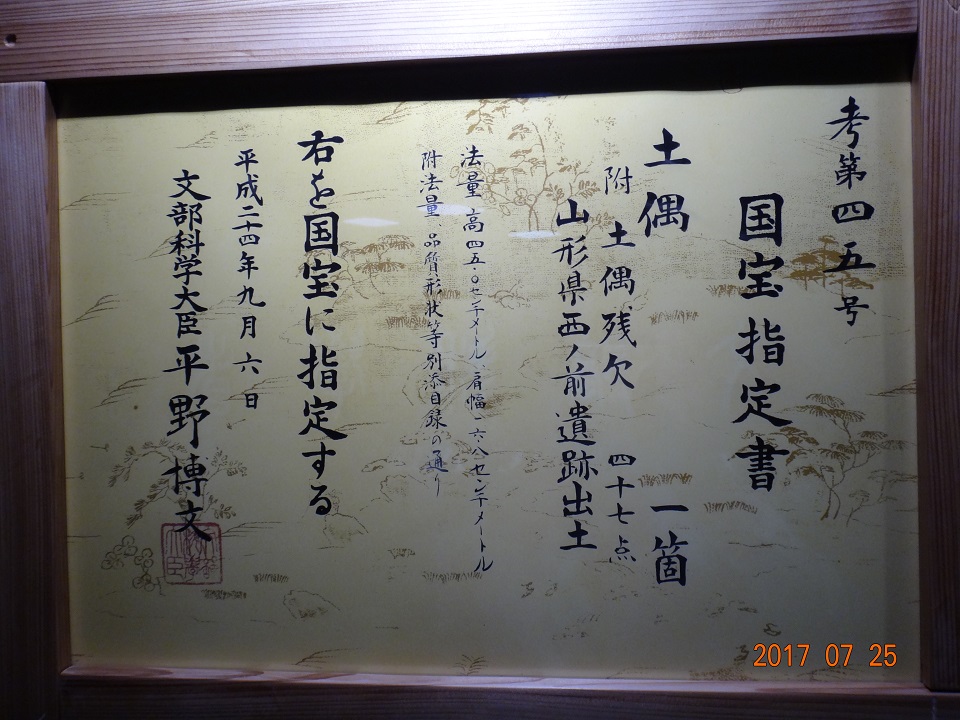 考第四五号
国宝指定書
土偶 一箇
附 土偶残欠 四十七点
山形県西ノ前遺跡出土
法量 高四五・〇センチメートル、肩幅一六・八センチメートル
附法量、品質形状等別添目録の通り
右を国宝に指定する
平成二十四年九月六日
文部科学大臣 平野博文
2017 07 25